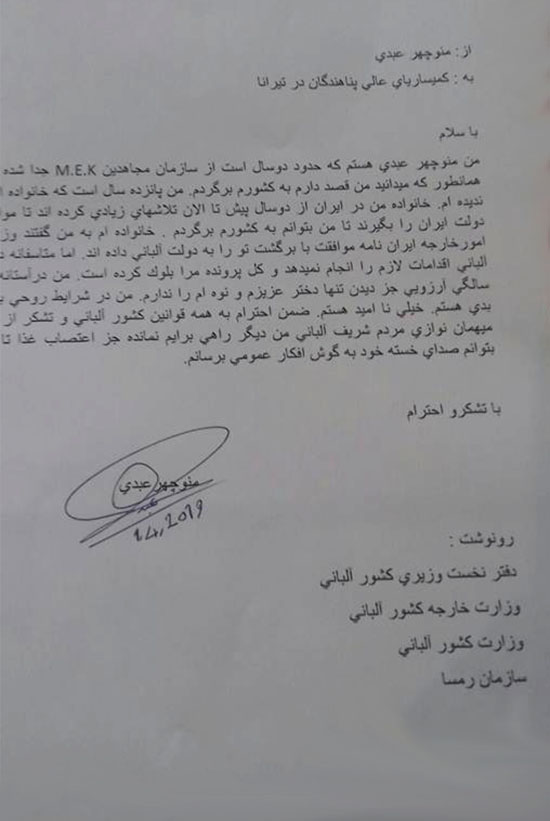 از: منوچهر عبدي
به : كميسارياي عالي پناهندگان در تيرانا
با سلام
من منوچهر عبدي هستم كه حدود دوسال است از سازمان مجاهدين M.E.K جدا شده
همانطور كه ميدانيد من قصد دارم به كشورم برگردم. من پانزده سال است كه خانواده ا
نديده ام. خانواده من در ايران از دوسال پيش تا الان تلاشهاي زيادي كرده اند تا موا
دولت ايران را بگيرند تا من بتوانم به كشورم برگردم . خانواده ام به من گفتند وز
امورخارجه ايران نامه موافقت با برگشت تو را به دولت آلباني داده اند. اما متاسفانه د
آلباني اقدامات لازم را انجام نميدهد و كل پرونده مرا بلوك كرده است. من درآستانه
سالگي آرزويي جز ديدن تنها دختر عزيزم و نوه ام را ندارم. من در شرايط روحي ب
بدي هستم. خيلي نا اميد هستم. ضمن احترام به همه قوانين كشور آلباني و تشكر از
ميهمان نوازي مردم شريف آلباني من ديگر راهي برايم نمانده جز اعتصاب غذا تا
بتوانم صداي خسته خود به گوش افكار عمومي برسانم.
با تشكرو احترام
منوچهر عبدي
1.4.2019
رونوشت :
دفتر نخست وزيري كشور آلباني
وزارت خارجه كشور آلباني
وزارت كشور آلباني
سازمان رمسا